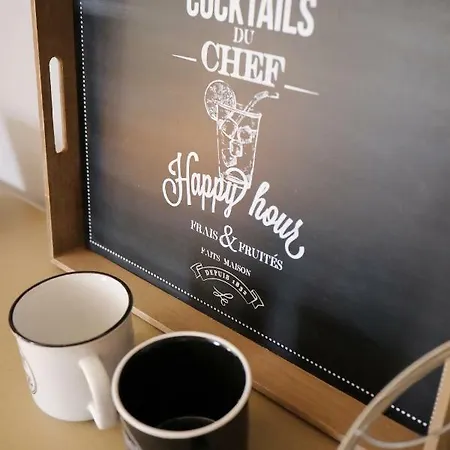 COCKTAILS
DU
CHEF
Happy hour
FRAIS & FRUITÉS
FAITS MAISON